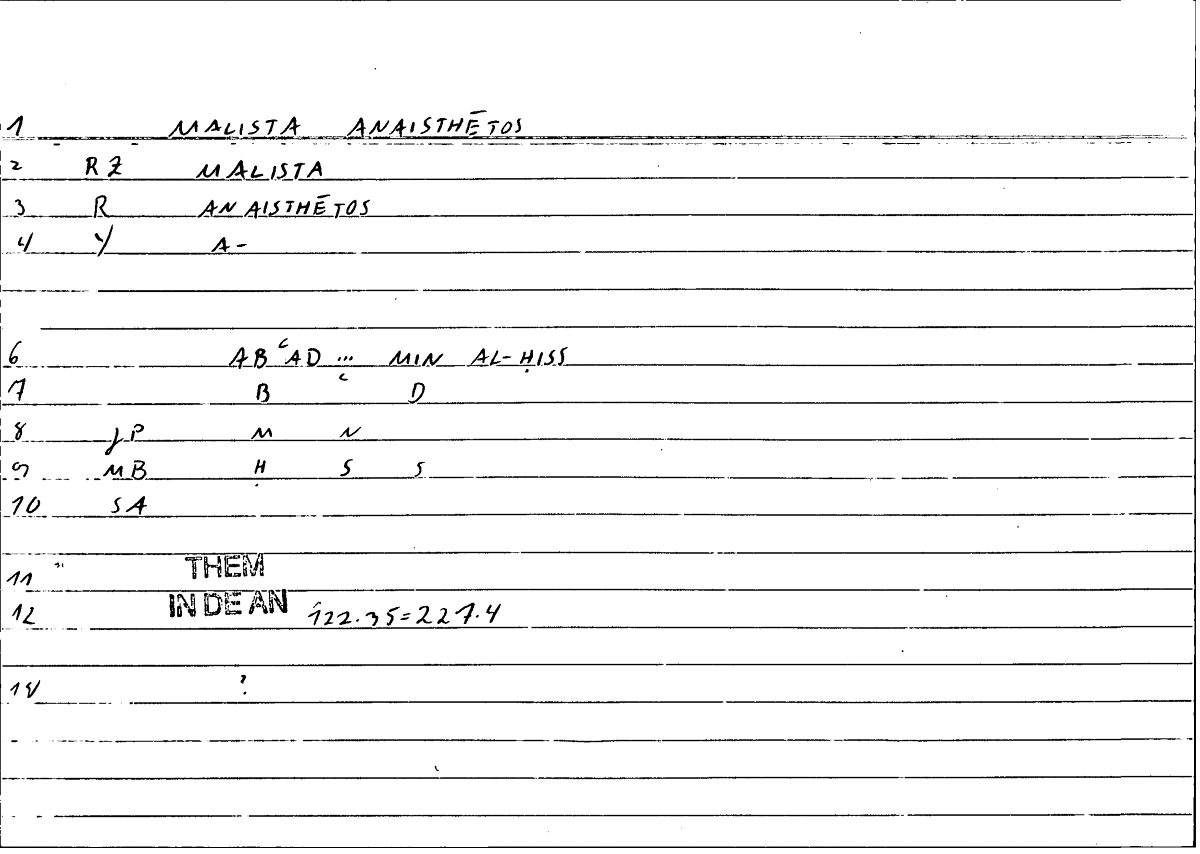 1 MALISTA ANAISTHĒTOS
2 RZ MALISTA
3 R ANAISTHĒTOS
4 Y A-
6 ABʿAD ... MIN AL-ḤISS
7 B ʿ D
8 JP M N
9 MB Ḥ S S
10 SA
11 THEM
12 IN DE AN 122.35=227.4
14 ?